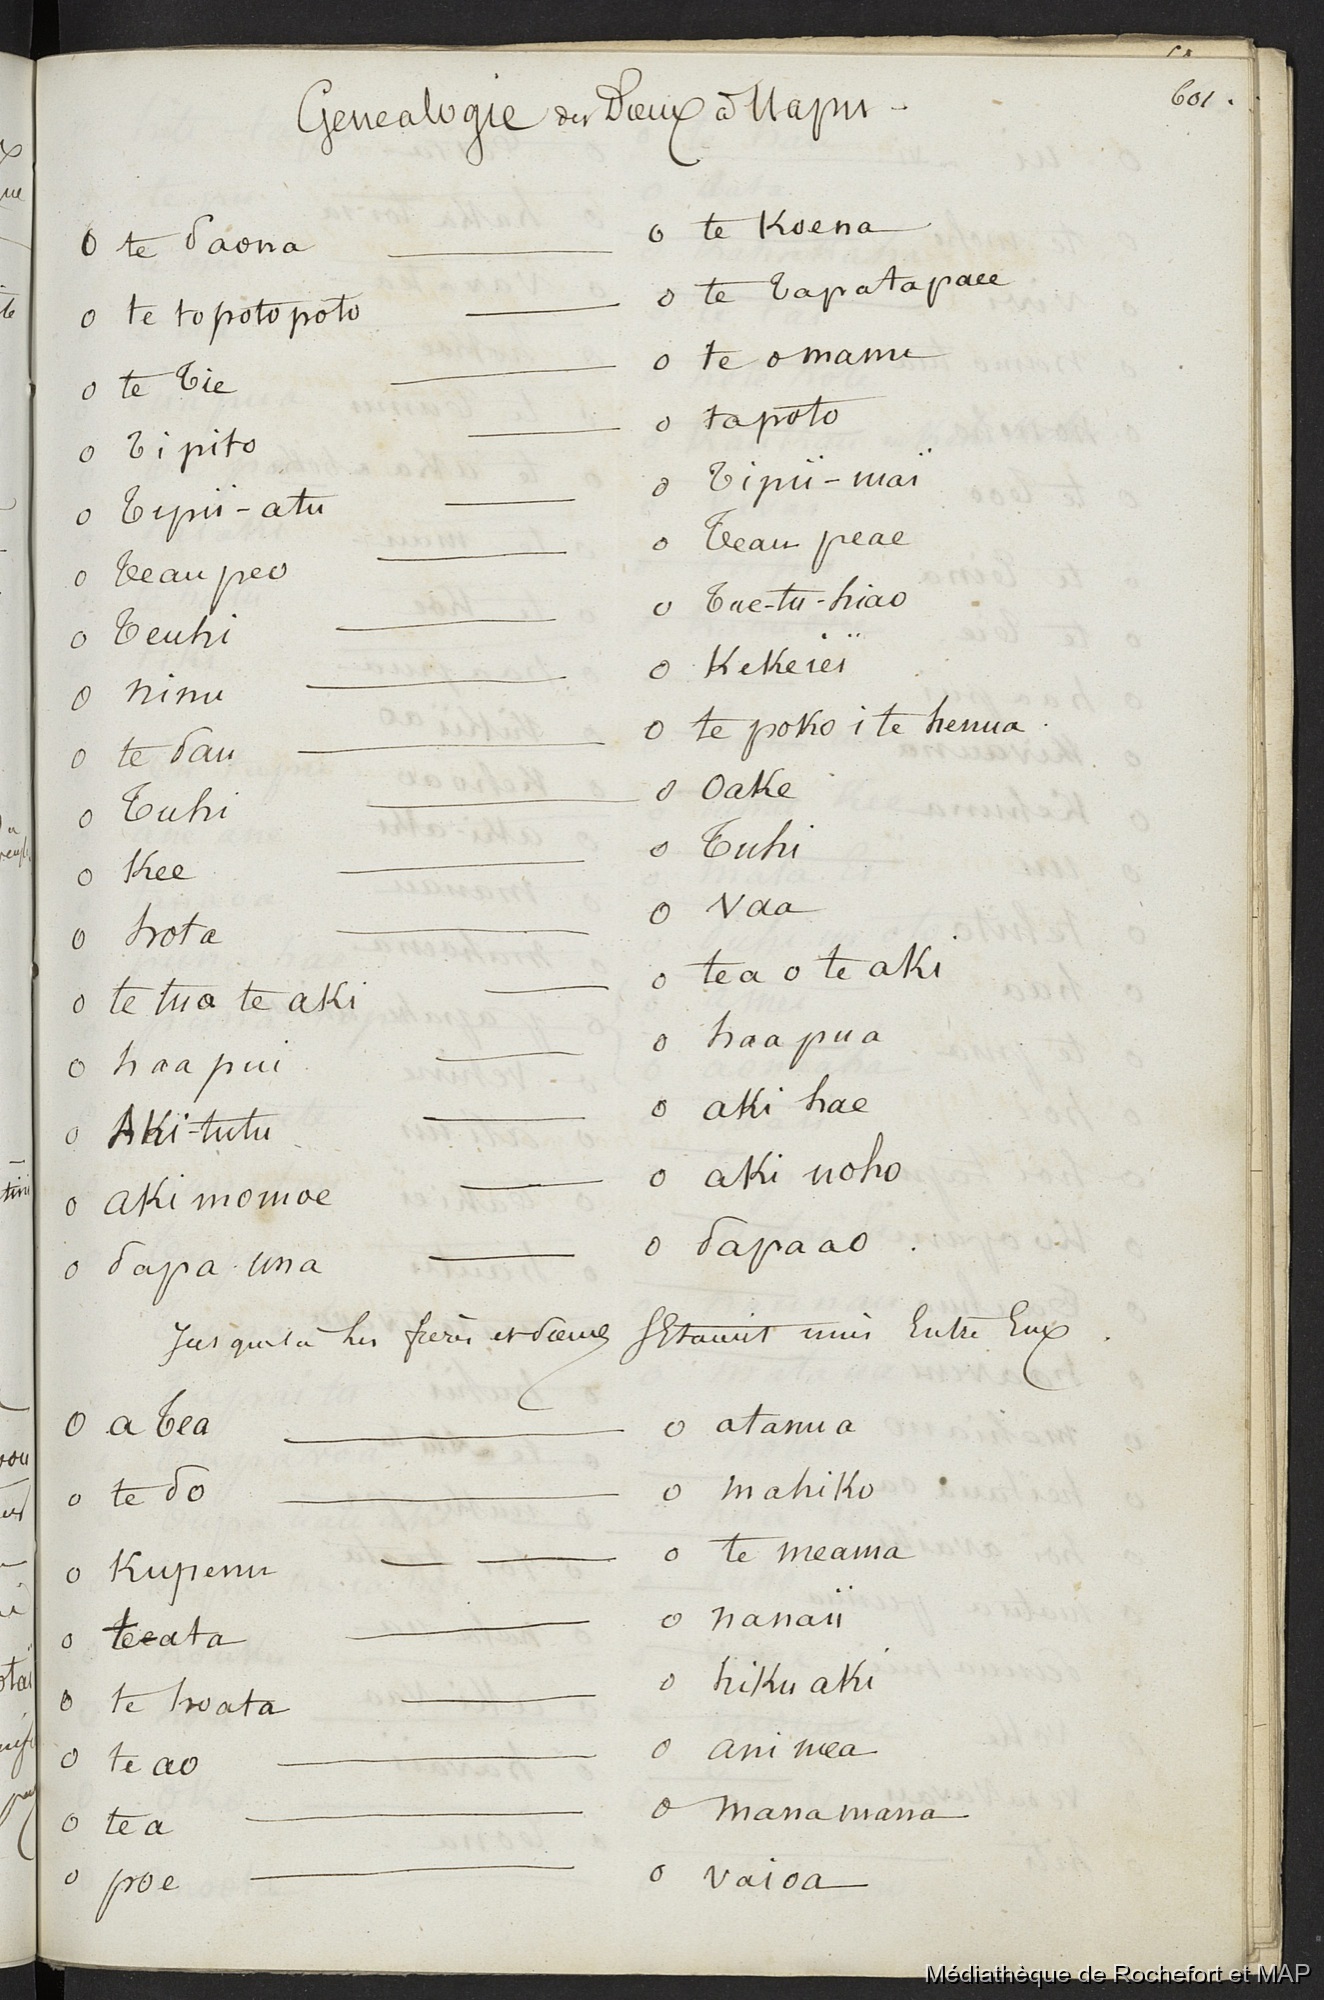 601.
Genealogie des Dieux à Uapu
O te Taona — o te Koena
o te topotopoto — o te Tapatapaee
o te Tie — o te omamu
o Tipito — o tapoto
o Tipii-atu — o Tipii-maï
o Teau peo — o Teau peae
o Teuhi — o Tue-tu-hiao
o ninu — o Kekeieï
o te Tau — o te poko i te henua.
o Tuhi — o oake
o Kee — o Tuhi
o hota — o vaa
o te tua te aki — o tea o te aki
o haapui — o haapua
o Aki-tutu — o aki hae
o aki momoe — o aki noho
o Tapa una — o Tapaao.
Jusque là les freres et Soeurs S'Etaient unis Entre Eux.
O a Tea — o atanua
o te To — o mahiko
o Kupenu — o te meama
o teeata — o nanaii
o te hoata — o hiku aki
o te ao — o animea
o tea — o manamana
o poe — o vaioa
Médiathèque de Rochefort et MAP